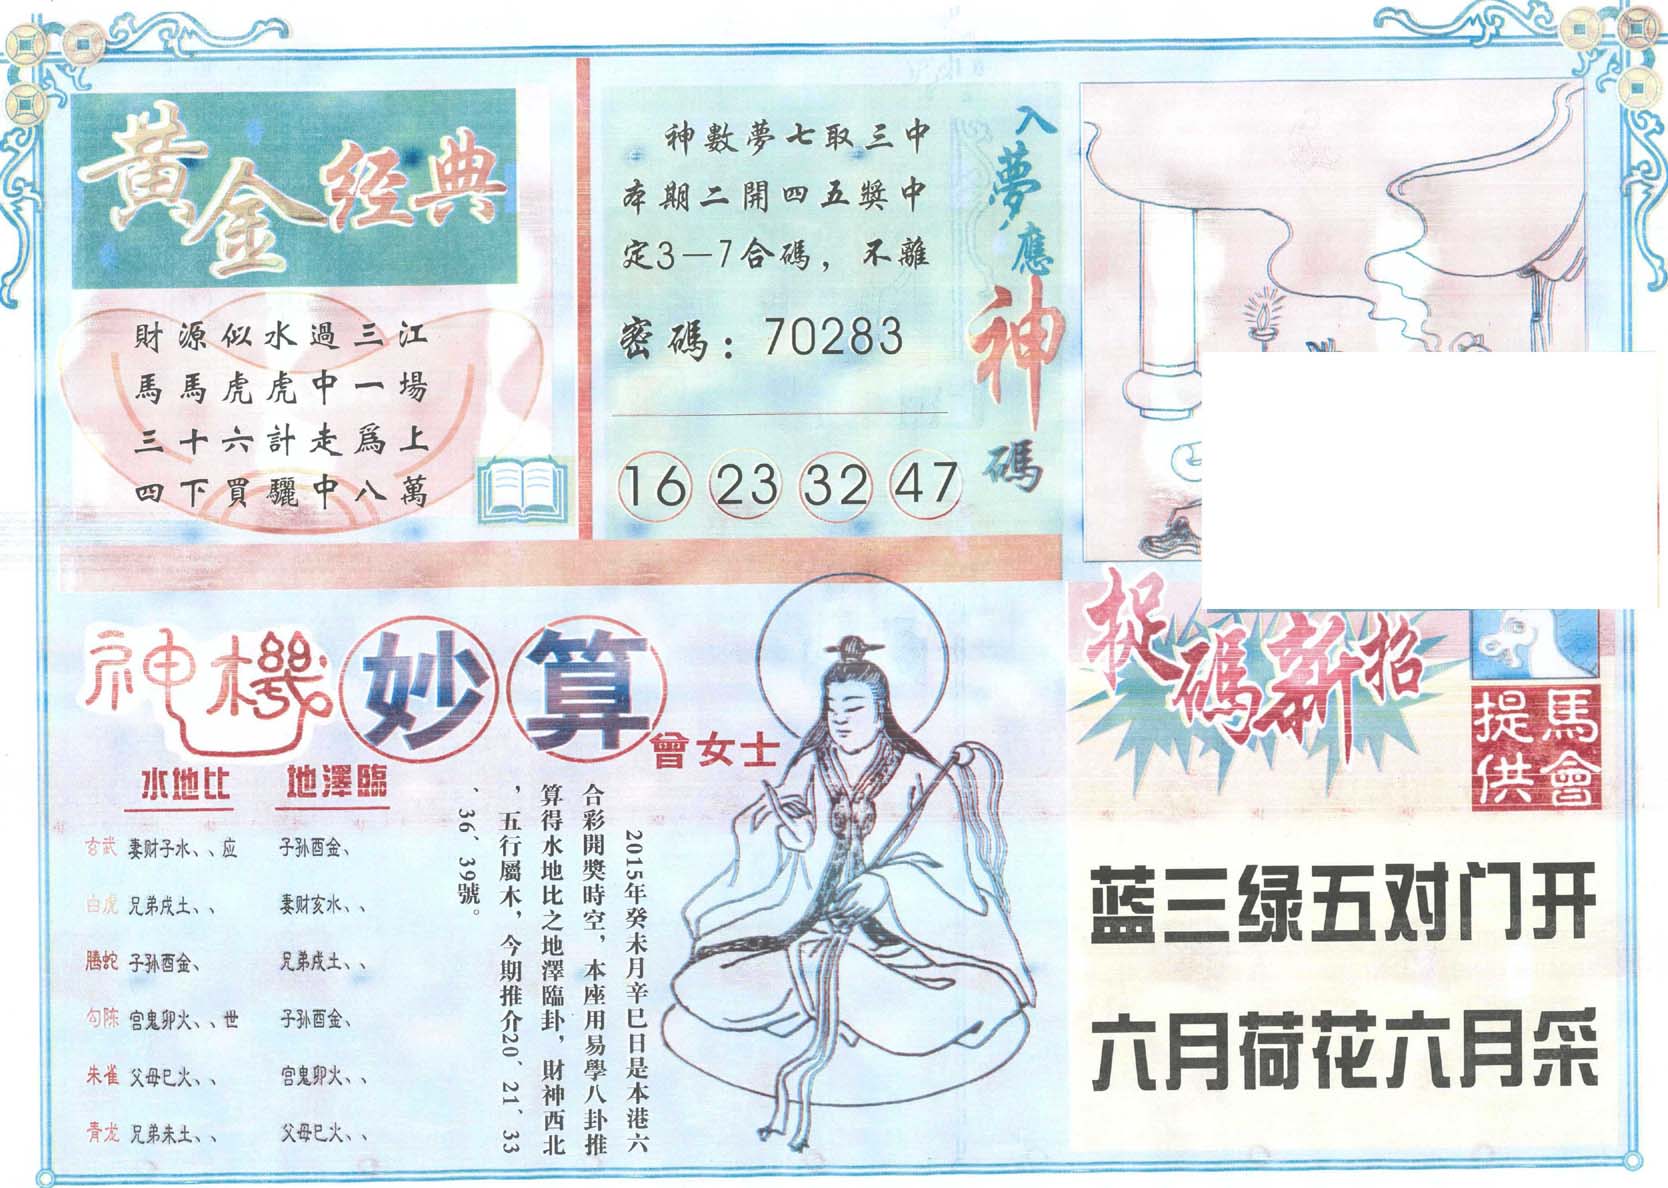 黃金经典
財源似水過三江
馬馬虎虎中一場
三十六計走爲上
四下買驪中八萬
神數夢七取三中
本期二開四五獎中
定3—7合碼，不離
密碼：70283
16 23 32 47
入夢應神碼
神機妙算
曾女士
水地比 地澤臨
玄武 妻财子水、、应 子孙酉金、
白虎 兄弟戌土、、 妻财亥水、、
腾蛇 子孙酉金、 兄弟戌土、、
勾陈 官鬼卯火、、世 子孙酉金、
朱雀 父母巳火、、 官鬼卯火、、
青龙 兄弟未土、、 父母巳火、、
2015年癸未月辛巳日是本港六
合彩開獎時空，本座用易學八卦推
算得水地比之地澤臨卦，財神西北
，五行屬木，今期推介20、21、33
、36、39號。
捉碼新招
馬會
提供
蓝三绿五对门开
六月荷花六月采